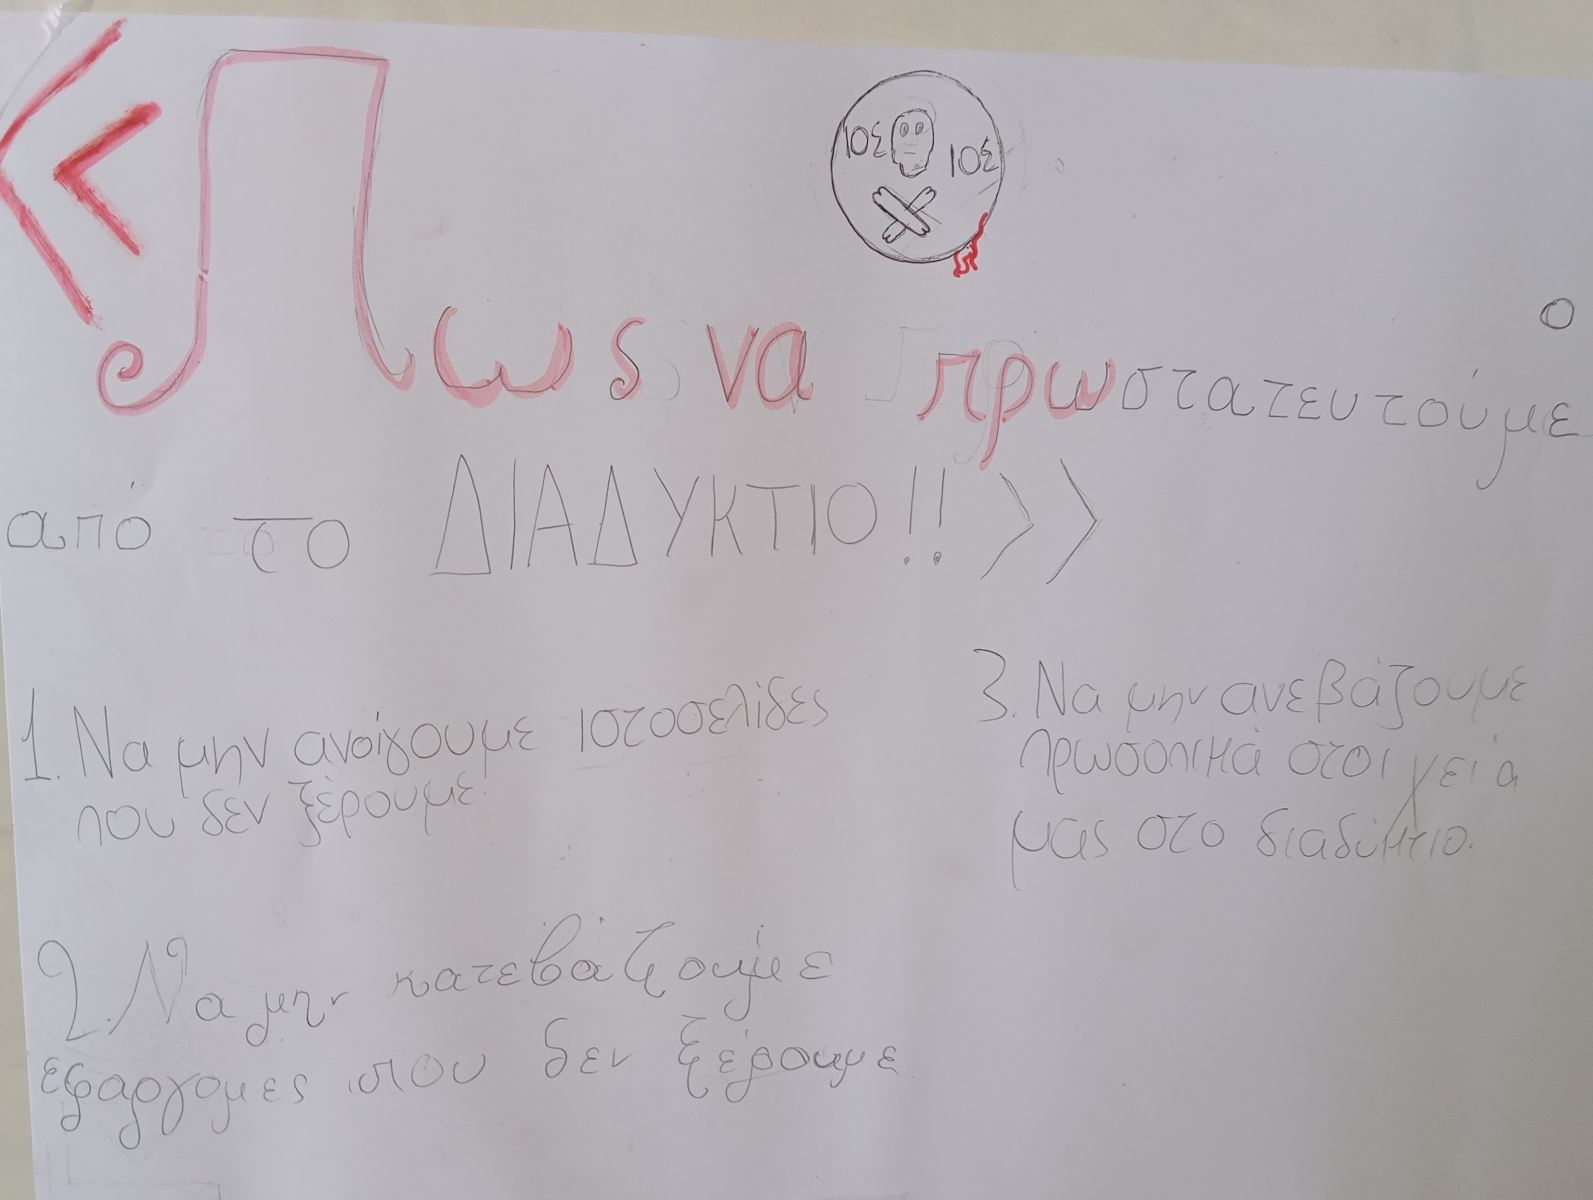 ιοΣ ιοΣ
<<Πως να πρωστατευτούμε
από το ΔΙΑΔΥΚΤΙΟ!!>>
1. Να μην ανοίγουμε ιστοσελίδες
που δεν ξέρουμε.
2. Να μην κατεβάζουμε
εφαρρομες που δεν ξέρουμε
3. Να μην ανεβάζουμε
πρωσοπικά στοιχειά
μας στο διαδίκτιο.